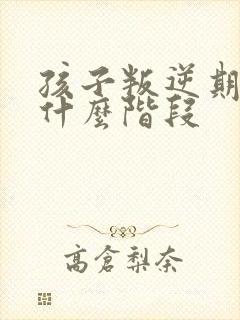 孩子叛逆期
什麼階段
高倉梨奈